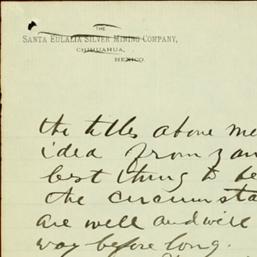 THE
SANTA EULALIA SILVER MINING COMPANY,
CHIHUAHUA,
MEXICO.
the titles above me
idea from
best thing to be
the circumsta
are well and will
way before long.